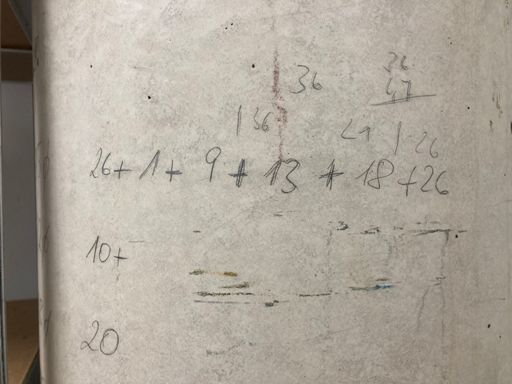 36
26
47
| 36
21 | 26
26 + 1 + 9 + 13 + 18 + 26
10 +
20